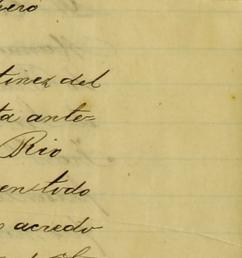 ero
tinez del
ta ante=
Rio
en todo
acredo